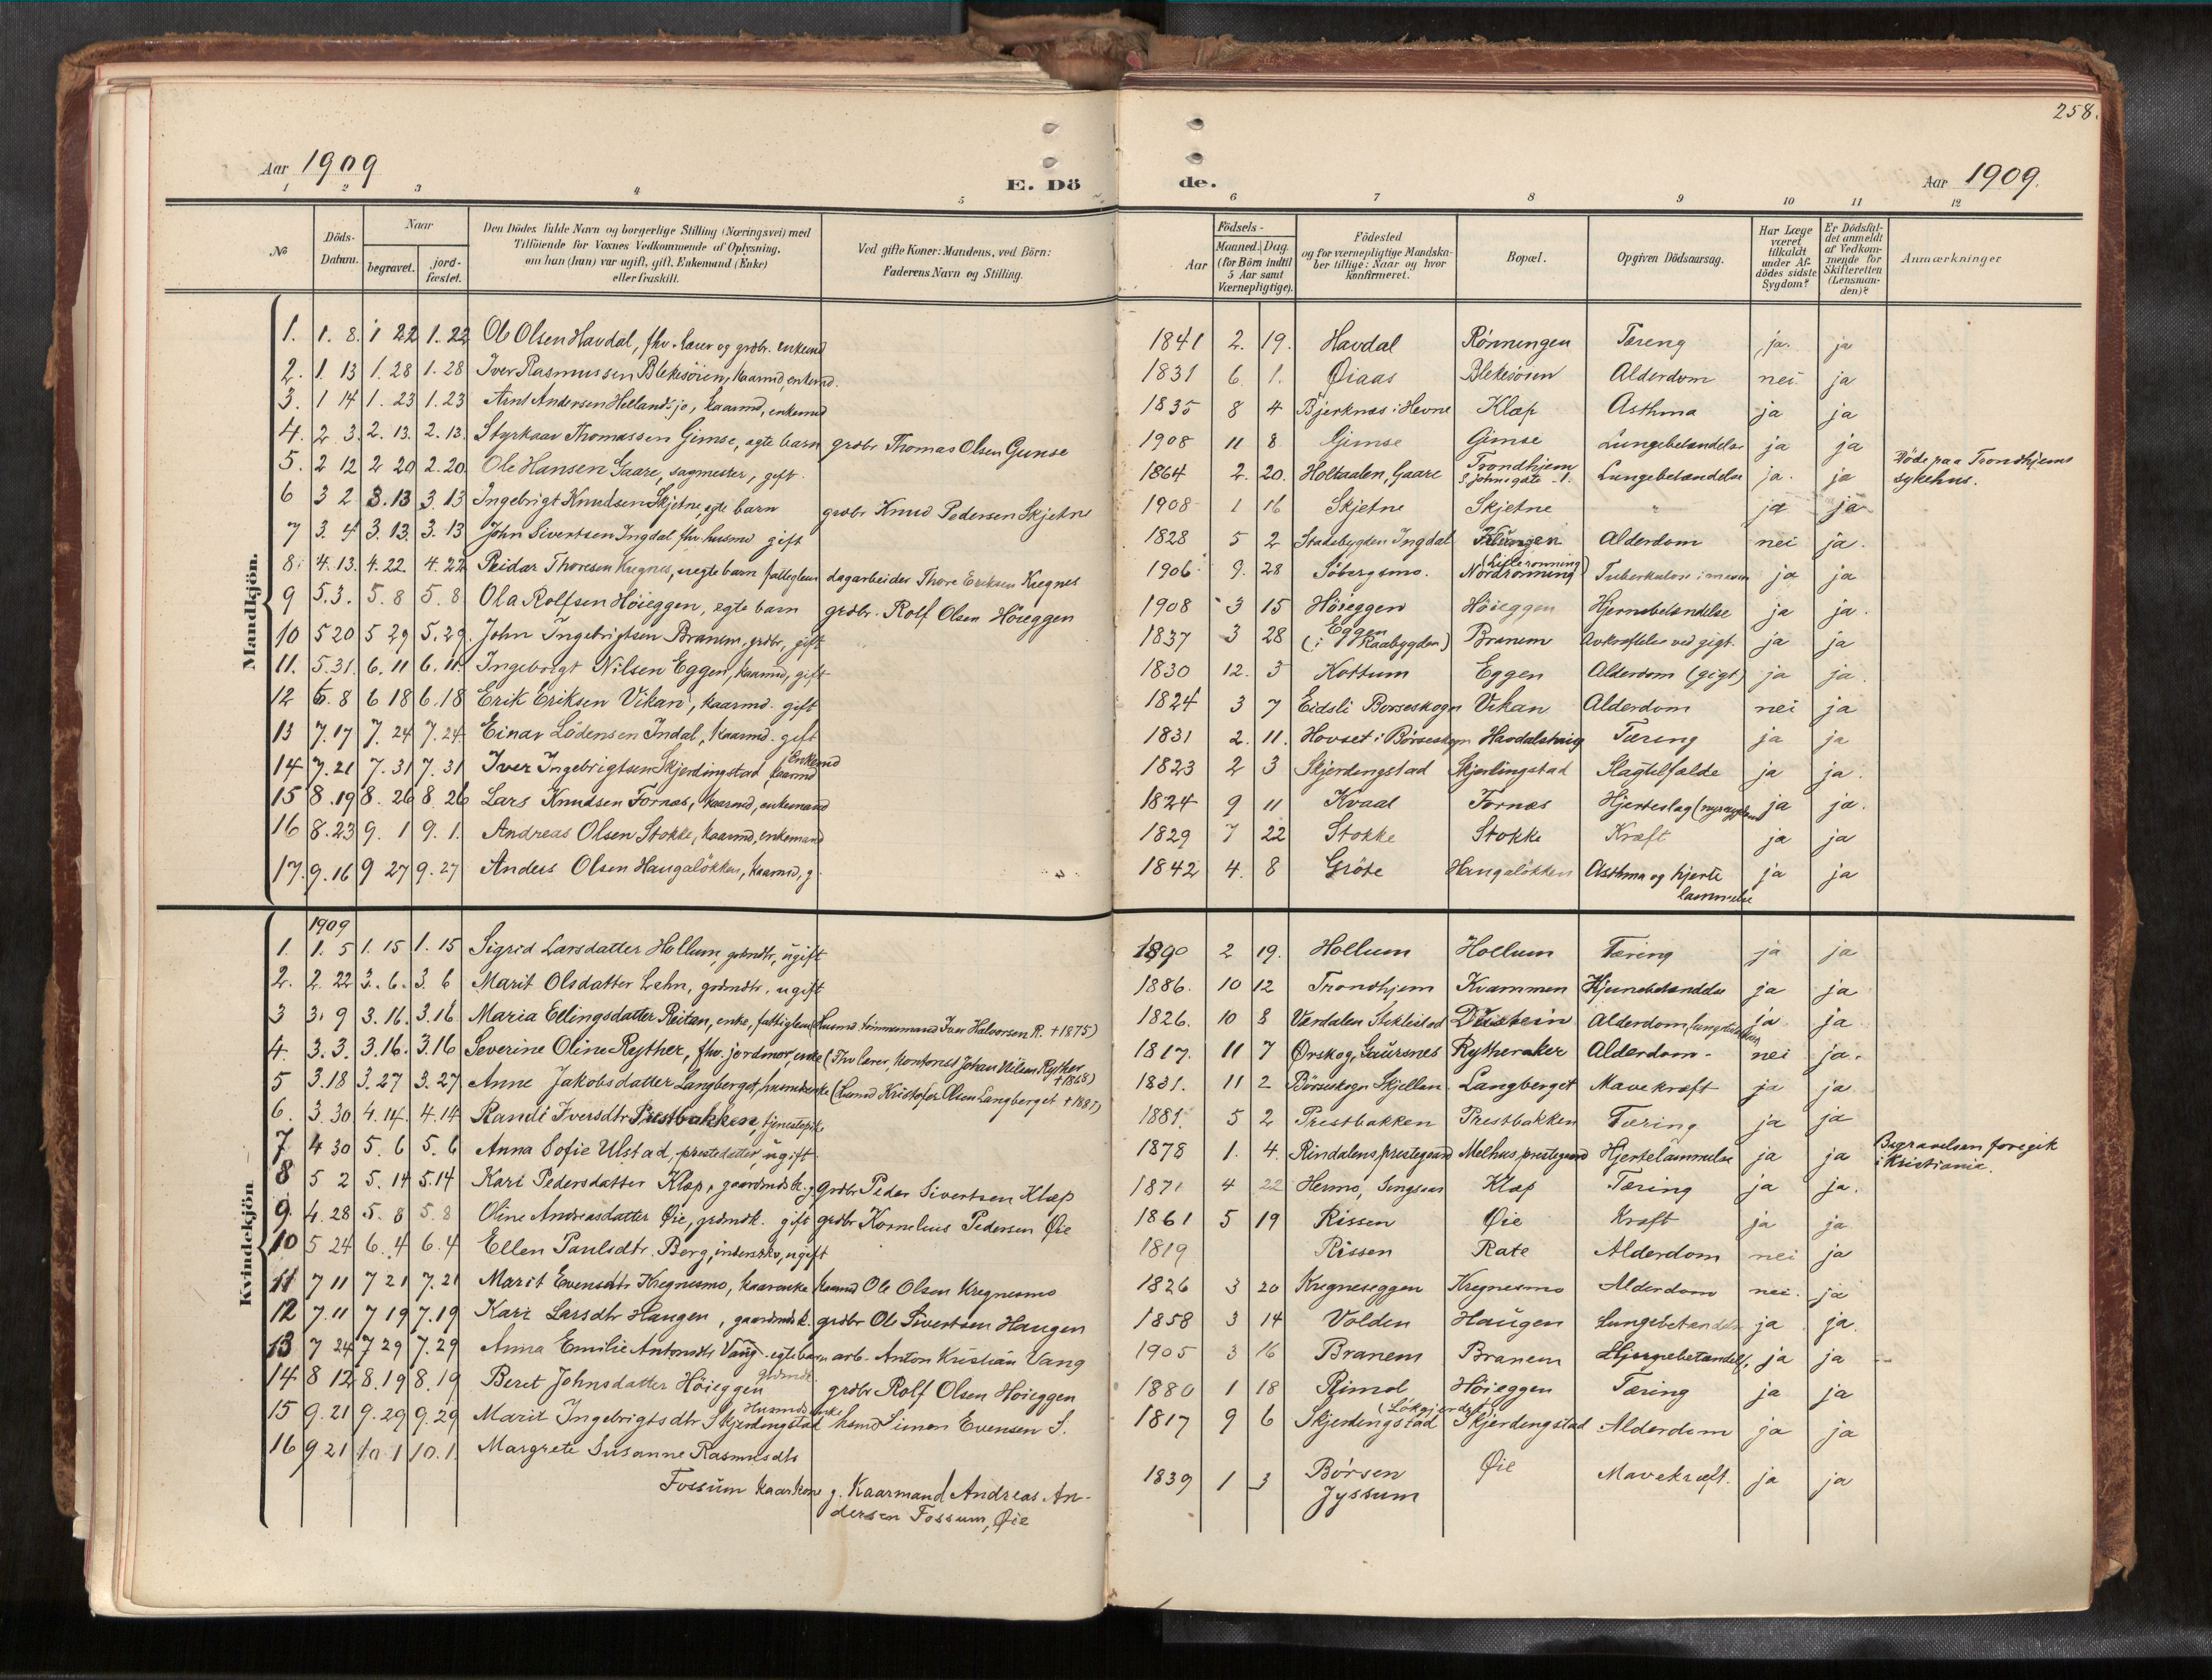 258.
Aar 1909
E. Döde.
Aar 1909.
1 2 3 4 5 6 7 8 9 10 11 12
No
Döds-Datum.
Naar
begravet.
jordfæstet.
Den Dödes fulde Navn og borgerlige Stilling (Næringsvei) med
Tilföiende for Voxnes Vedkommende af Oplysning,
om han (hun) var ugift, gift, Enkemand (Enke)
eller fraskilt.
Ved gifte Koner: Mandens, ved Börn:
Faderens Navn og Stilling.
Födsels-
Aar
Maaned. Dag.
(for Börn indtil
5 Aar samt
Værnepligtige).
Födested
og for værnepligtige Mandska-
ber tillige: Naar og hvor
konfirmeret.
Bopæl.
Opgiven Dödsaarsag.
Har Læge
været
tilkaldt
under Af-
dödes sidste
Sygdom?
Er Dödsfal-
det anmeldt
af Vedkom-
mende for
Skifteretten
(Lensman-
den)?
Anmærkninger
Mandkjön.
1. 1. 8. 1 22 1. 22 Ole Olsen Havdal, fhv. lærer og grdbr. enkemd 1841 2. 19. Havdal Rønningen Tæreng ja. ja
2. 1. 13 1. 28 1. 28 Iver Rasmussen Blekesöien, kaarmd, enkemd. 1831 6. 1. Øiaas Blekesöien Alderdom nei ja
3. 1 14 1. 23 1. 23 Arnt Andersen Hellandsjo, kaarmd, enkemd 1835 8 4 Bjerknæs i Hevne Klæp Asthma ja ja
4. 2 3. 2. 13. 2. 13. Styrkaar Thomassen Gimse, ægte barn grdbr Thomas Olsen Gimse 1908 11 8 Gimse Gimse Lungebetændelse ja ja
5. 2 12 2 20 2. 20. Ole Hansen Gaare, sagmester, gift. 1864 2. 20. Holtaalen, Gaare Trondhjem Lungebetændelse ja. ja Döde paa Trondhjems sykehus.
6 3 2 3. 13 3. 13 Ingebrigt Knudsen Skjetne, egte barn grdbr Knud Pedersen Skjetne 1908 1 16 Skjetne Skjetne " ja ja
7 3. 4 3. 13. 3. 13 John Sivertsen Ingdal fhv. husmd gift 1828 5 2 Stadsbygden Ingdal Alderdom nei ja.
8. 4. 13. 4. 22. 4. 22 Reidar Thoresen Kregnes, uegte barn dagarbeider Thore Eriksen Kregnes 1906. 9. 28 Söbergsmo. Nordrönning Tuberkulose i maven ja ja
9 5. 3. 5. 8 5. 8 Ola Rolfsen Höieggen, egte barn grdbr. Rolf Olsen Höieggen 1908 3 15 Höieggen Höieggen Hjernebetændelse ja ja.
10 5 20 5 29 5. 29. John Ingebrigtsen Branem, grdbr, gift 1837 3 28 Eggen (i Raabygden) Branem Avkræftelse ved gigt. ja ja
11. 5. 31. 6. 11 6. 11. Ingebrigt Nilsen Eggen, kaarmd, gift 1830 12. 3 Kottum Eggen Alderdom (gigt) ja ja.
12 6. 8 6 18 6. 18 Erik Eriksen Vikan, kaarmd. gift 1824 3 7 Eidsli Børseskogn Vikan Alderdom nei ja
13 7. 17 7. 24 7. 24. Einar Lödensen Indal, kaarmd. gift 1831 2. 11. Hovset i Börseskogn Havdalshaug Tæring ja ja
14 7. 21 7. 31 7. 31 Iver Ingebrigtsen Skjerdingstad, kaarmd Enkemd 1823 2 3 Skjerdingstad Skjerdingstad Slagtilfælde ja ja.
15 8. 19 8. 26 8. 26 Lars Knudsen Fornæs, kaarmd, enkemand 1824 9 11 Kvaal Fornæs Hjerteslag ja ja.
16 8. 23 9. 1 9. 1. Andreas Olsen Stokke, kaarmd, enkemand 1829 7 22 Stokke Stokke Kræft ja ja
17. 9. 16 9 27 9. 27 Anders Olsen Haugalökken, kaarmd, g 1842 4. 8 Gröte Haugalökken Asthma og hjerte lammelse ja ja
Kvindekjön
1909
1. 1. 5 1. 15 1. 15 Sigrid Larsdatter Hollum, grdmdtr, ugift 1890 2 19. Hollum Hollum Tæring ja ja
2. 2. 22 3. 6. 3. 6 Marit Olsdatter Lehn, grdmdtr. ugift 1886. 10 12 Trondhjem Kvammen Hjernebetændelse ja ja
3 3. 9 3. 16. 3. 16 Maria Ellingsdatter Reitan, enke, fattiglem (Husmd. tømmermand Iver Halvorsen R. † 1875) 1826. 10 8 Værdalen Stiklestad Alderdom, ja ja
4. 3. 3. 3. 16. 3. 16 Severine Oline Ryther, fhv. jordmor, enke (Fhv lærer, kontorist Johan Nilsen Ryther † 1868) 1817. 11 7 Ørskog, Gaursnes Rytheraker Alderdom. nei ja.
5 3. 18 3. 27 3. 27 Anne Jakobsdatter Langberget, husmdsenke (husmd Kristofer Olsen Langberget † 1887) 1831. 11 2 Börseskogn Skjellan Langberget Mavekræft ja ja
6. 3. 30 4. 14. 4. 14 Randi Iversdtr Prestbakken, tjenestepike 1881. 5 2 Prestbakken Prestbakken Tæring ja ja
7 4 30 5. 6 5. 6 Anna Sofie Ulstad, prestedatter, ugift. 1878 1. 4. Rindalens prestegaard Melhus prestegaard Hjertelammelse ja ja Begravelsen foregik i Kristiania.
8 5 2 5. 14 5. 14 Kari Pedersdatter Klæp, gaardmdsk. g grdbr Peder Sivertsen Klæp 1871 4 22 Hemne, Klæp Tæring ja ja.
9. 4. 28 5. 8 5. 8 Oline Andreasdatter Øie, grdmdk. gift grdbr Kornelius Pedersen Øie 1861 5 19 Rissen Øie Kræft ja ja
10 5 24 6. 4 6. 4 Ellen Paulsdtr. Berg, ugift 1819 Rissen Rate Alderdom nei ja
11 7 11 7 21 7. 21 Marit Evensdtr Kregnesmo, kaarenke kaarmd Ole Olsen Kregnesmo 1826 3 20 Kregneseggen Kregnesmo Alderdom nei. ja
12 7. 11 7 19 7. 19 Kari Larsdtr Haugen, gaardmdsk. grdbr Ole Sivertsen Haugen 1858 3 14 Volden Haugen Lungebetændelse ja ja.
13 7 24 7 29 7. 29 Anna Emilie Antonsdtr Vang. egte barn arb. Anton Kristian Vang 1905 3 16 Branem Branem Hjernebetændelse, ja ja
14 8 12 8. 19 8. 19 Beret Johnsdatter Höieggen grdmdk. grdbr Rolf Olsen Höieggen 1880 1 18 Rimol Höieggen Tæring ja ja
15 9. 21 9. 29 9. 29 Marit Ingebrigtsdtr Skjerdingstad Husmdsenke husmd Simon Evensen S. 1817 9 6 Skjerdingstad Skjerdingstad Alderdom ja ja
16 9 21 10 1 10. 1. Margrete Susanne Rasmusdtr
Fossum kaarkone g. Kaarmand Andreas An-
dersen Fossum, Øie 1839 1 3 Börsen Jyssum Øie Mavekræft. ja ja